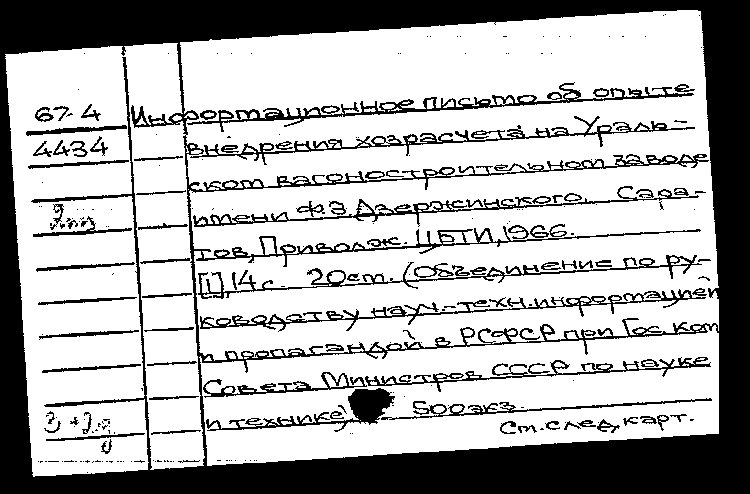 67-4 Информационное письмо об опыте
4434 внедрения хозрасчета на Ураль-
ском вагоностроительном заводе
имени Ф.Э.Дзержинского. Сара-
тов, Приволж. ЦБТИ, 1966.
[1], 14 с. 20см. (Объединение по ру-
ководству науч.-техн.информацией
и пропагандой в РСФСР при Гос.ком
Совета Министров СССР по науке
и технике) 500экз.
См.след.карт.